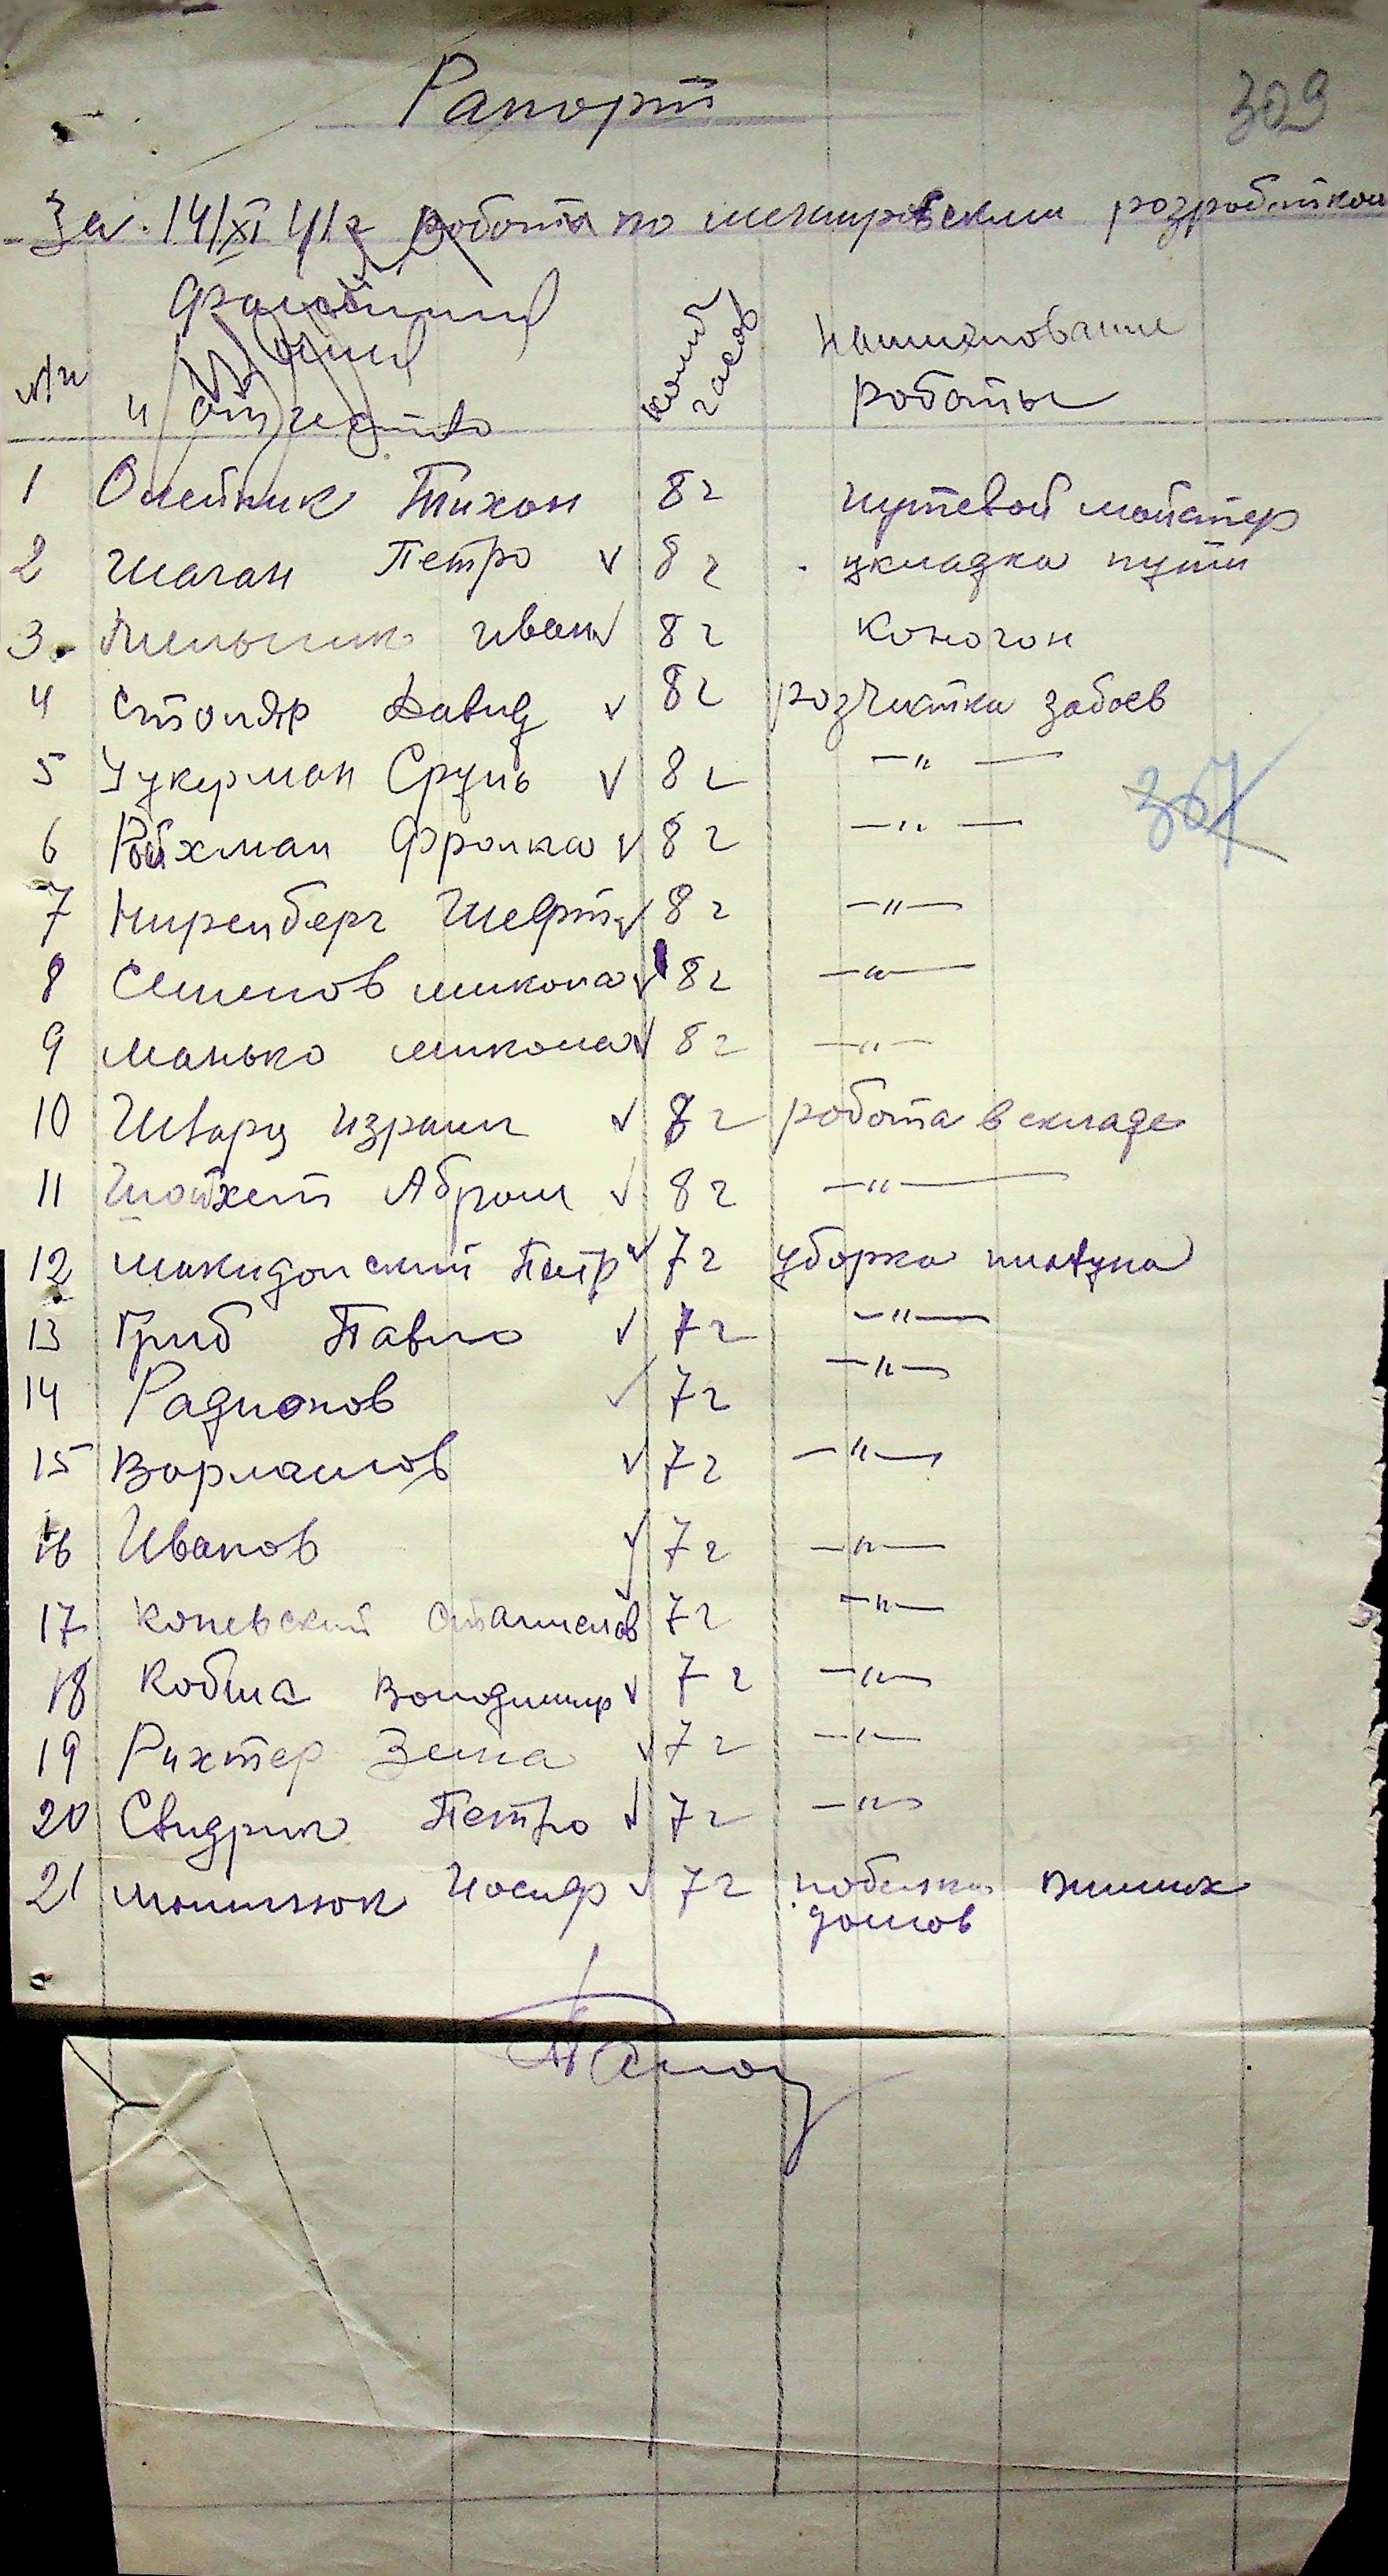 Рапорт
309
За 14/XI 41г работа по розработкам
Фамилия
имя
и отчество
№№
Колич часов
Наименование
роботы
1 Олейник Тихон 8 г путевой мойстер
2 Шаган Петро v 8 г укладка пути
3 Мельник иван v 8 г Коногон
4 Столяр Давид v 8 г розчистка забоев
5 Цукерман Сруль v 8 г —"—
307
6 Ройхман Фроика v 8 г —"—
7 Ниренберг v 8 г —"—
8 Семенов микола v 8 г —"—
9 манько микола v 8 г —"—
10 Шварц Израил v 8 г робота в складе
11 Шойхет Абрам v 8 г —"—
12 макидонский Петр v 7 г уборка
13 Гриб Павло v 7 г —"—
14 Радионов v 7 г —"—
15 Варламов v 7 г —"—
16 Иванов v 7 г —"—
17 Коневский Станислов 7 г —"—
18 Кобша Володимир v 7 г —"—
19 Рихтер Зема v 7 г —"—
20 Свидрик Петро v 7 г —"—
21 Иосиф v 7 г побелка
домов